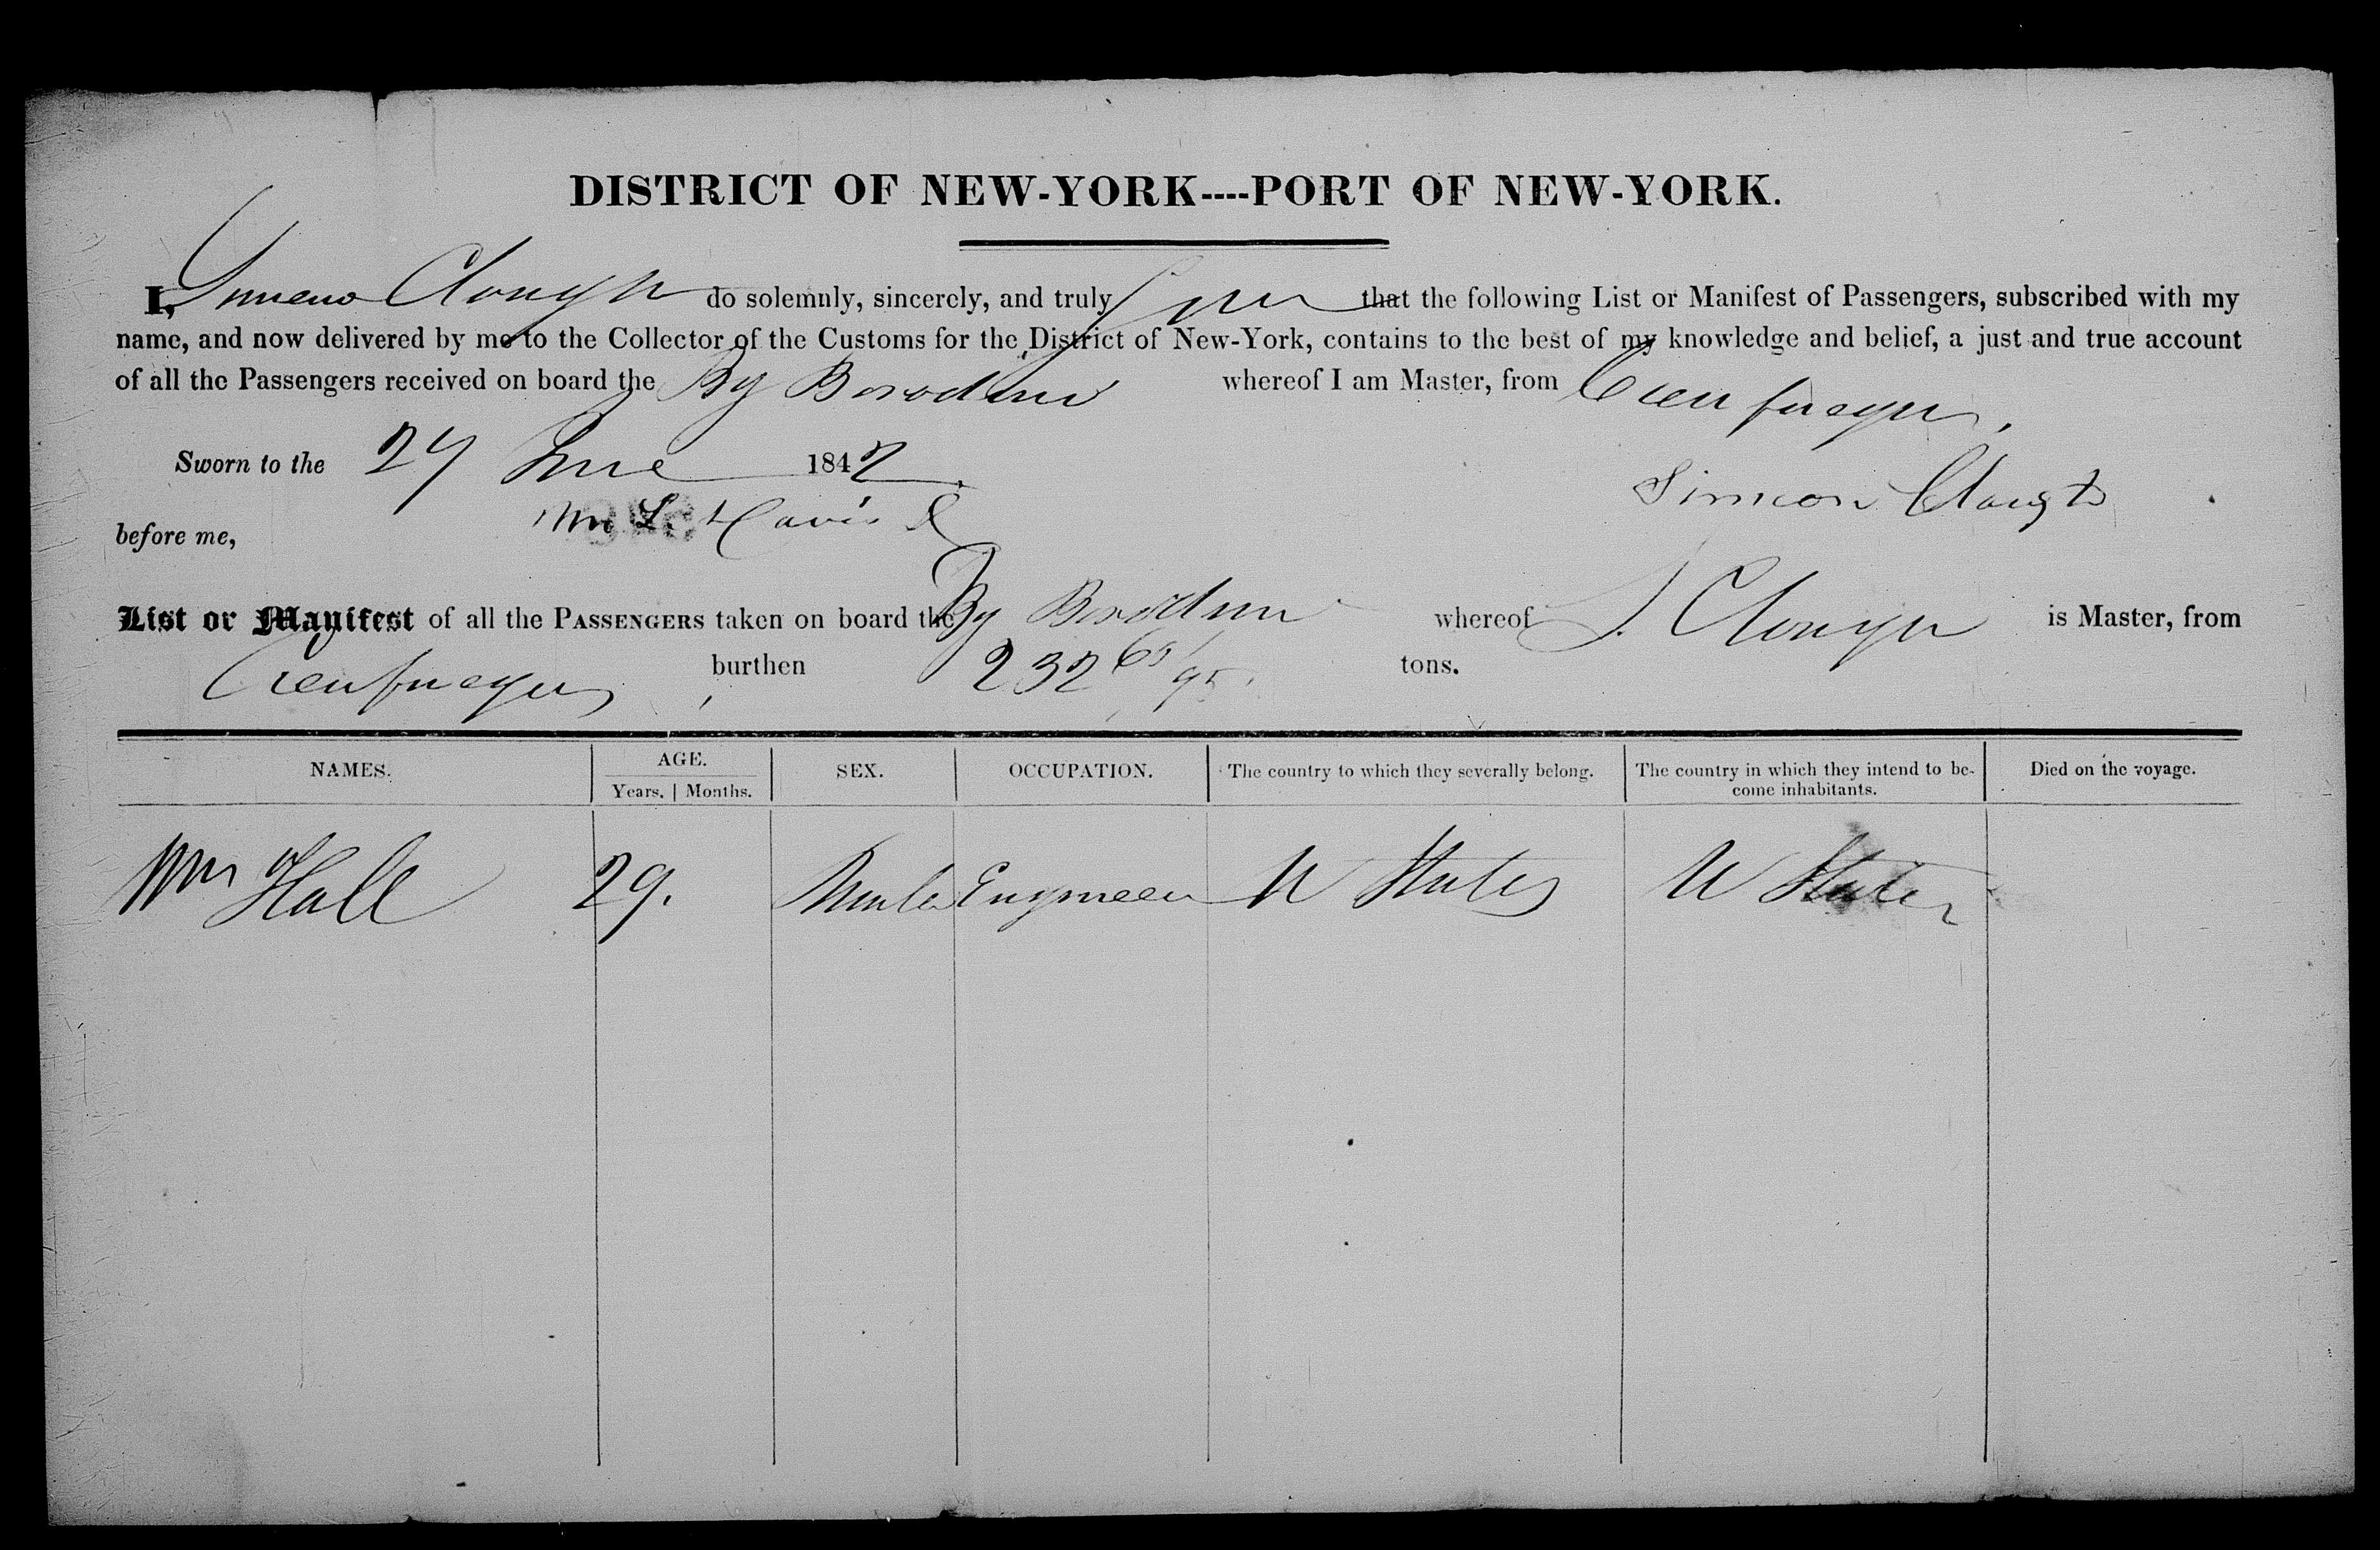 DISTRICT OF NEW-YORK----PORT OF NEW-YORK.
I, Simeon Clough do solemnly, sincerely, and truly that the following List or Manifest of Passengers, subscribed with my
name, and now delivered by me to the Collector of the Customs for the District of New-York, contains to the best of my knowledge and belief, a just and true account
of all the Passengers received on board the Bg Borodino whereof I am Master, from Cienfuegos,
Sworn to the 27 June 1842
before me,
Simeon Clough
List or Manifest of all the PASSENGERS taken on board the Bg Borodino whereof S. Clough is Master, from
Cienfuegos, burthen 232 65/95 tons.
NAMES. AGE. SEX. OCCUPATION. The country to which they severally belong. The country in which they intend to be- Died on the voyage.
Years. | Months. come inhabitants.
Wm Hall 29. Male Engineer U States U States